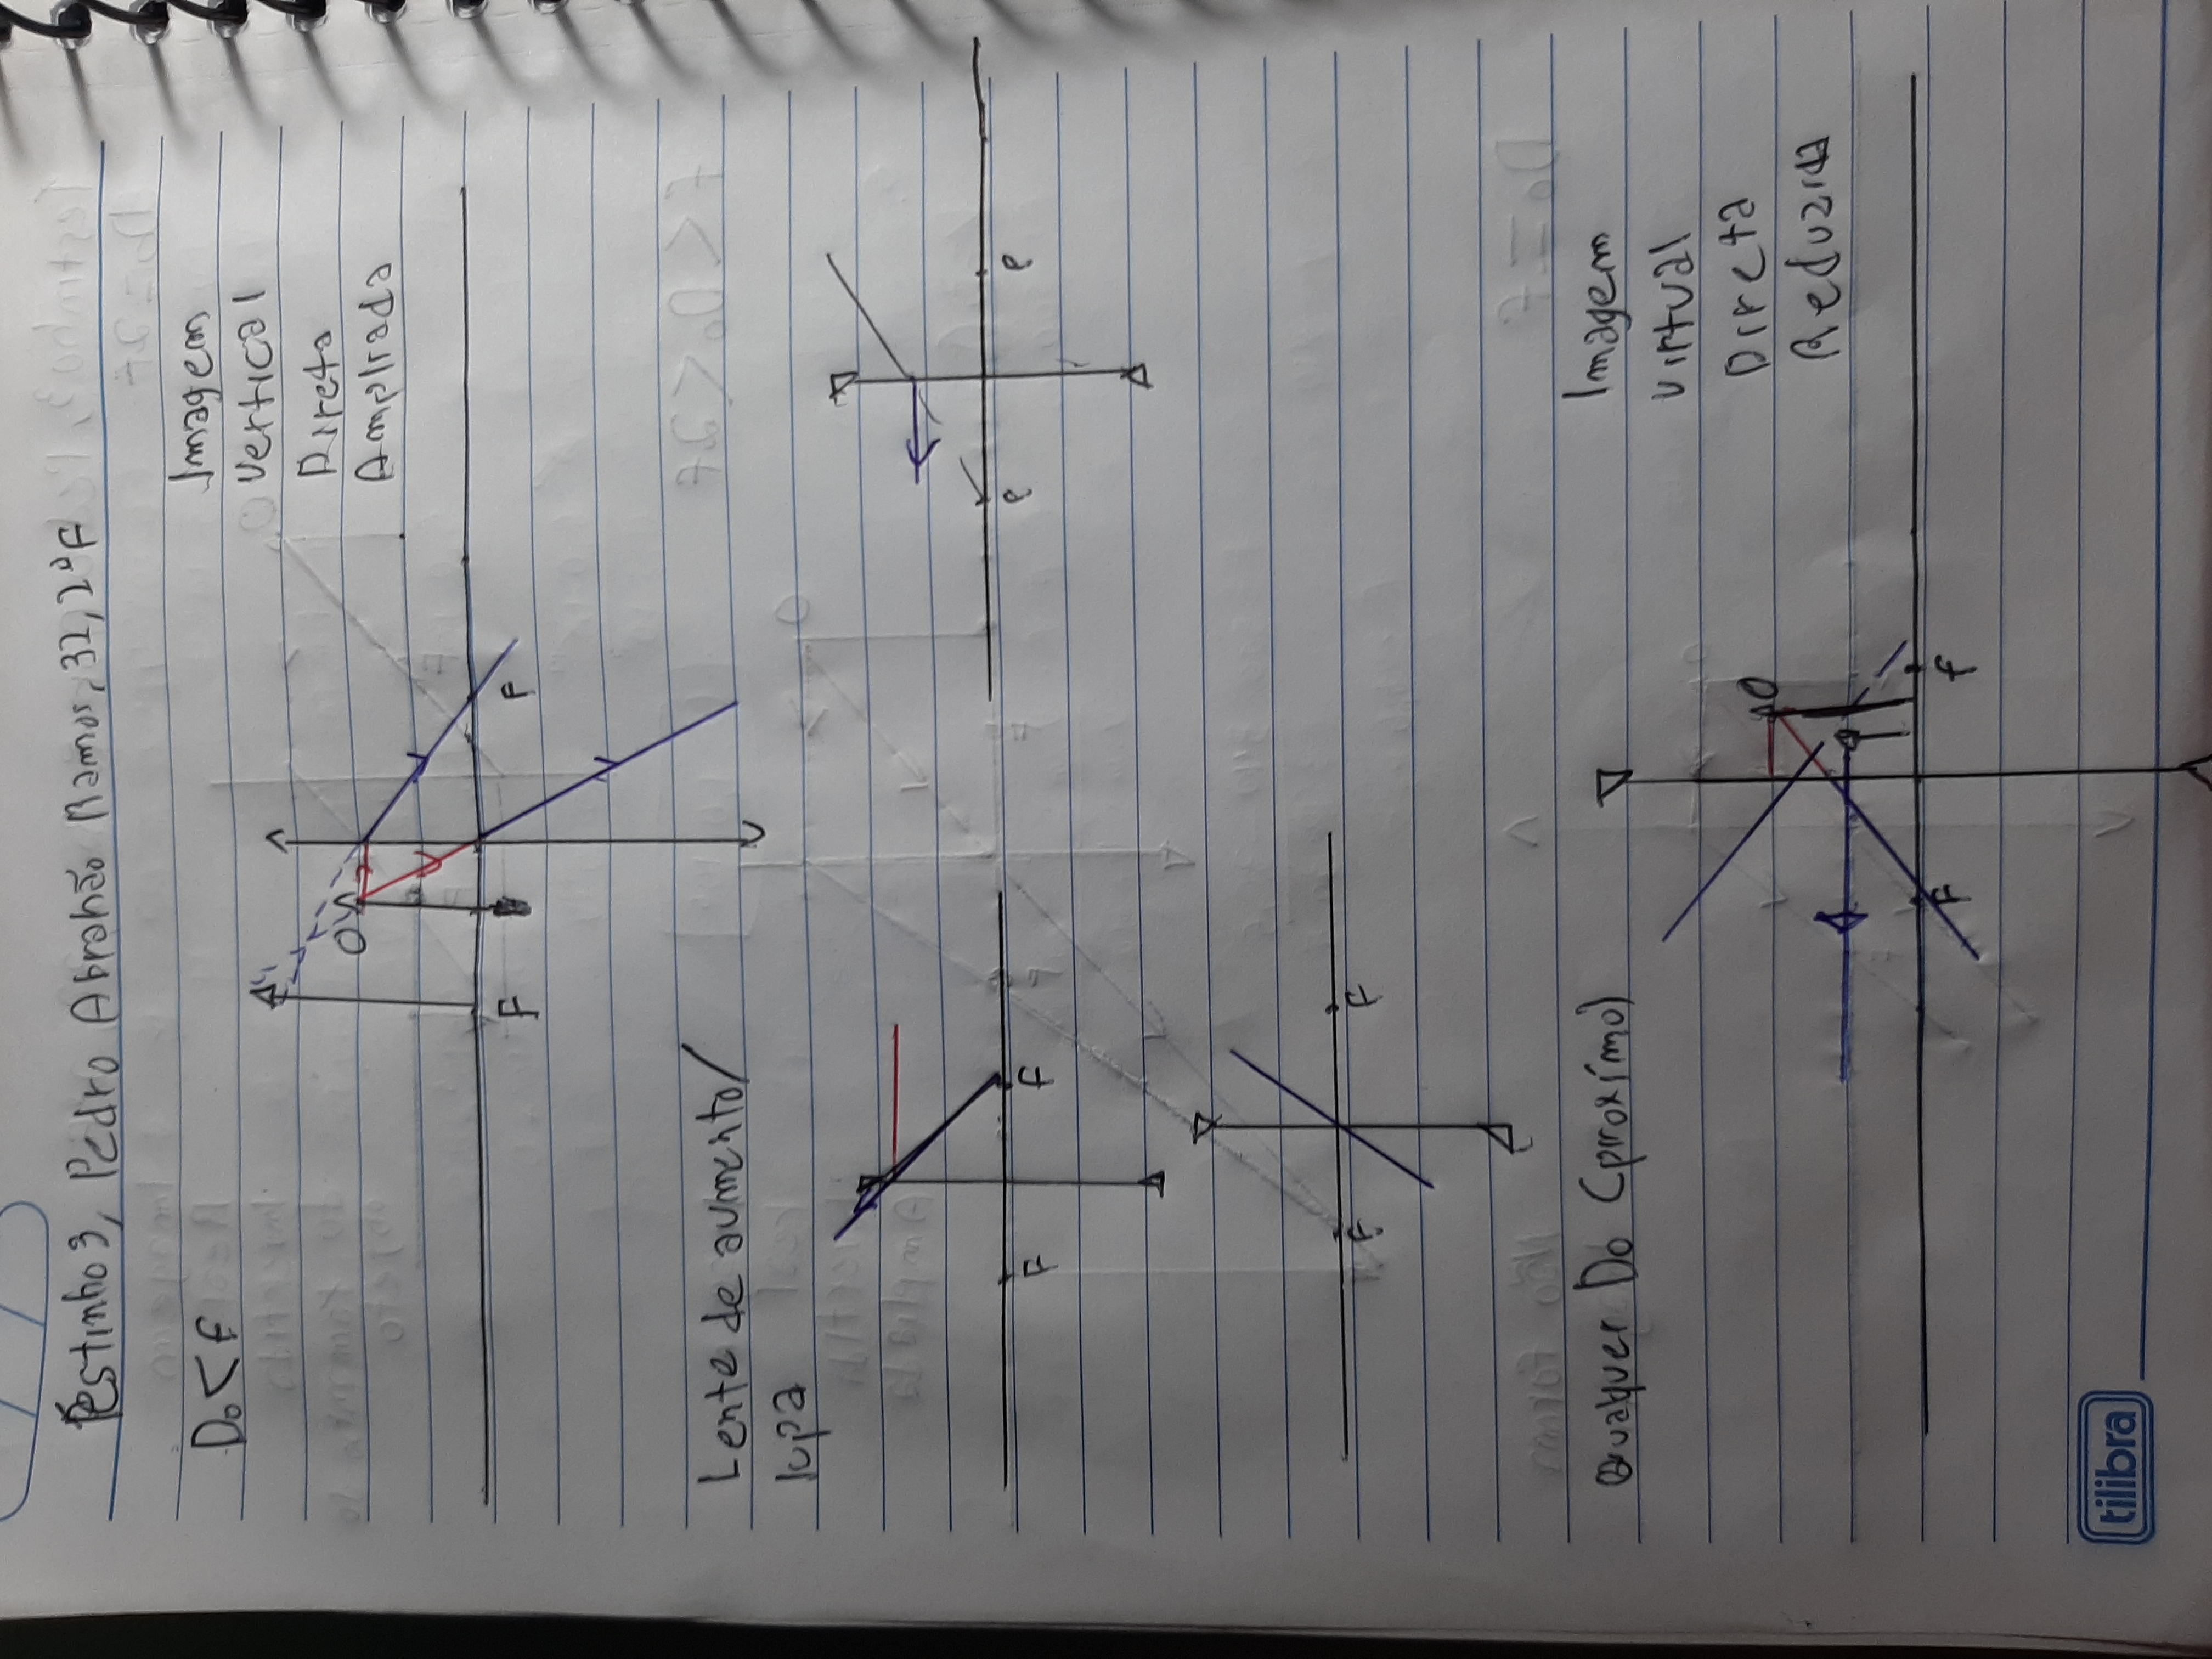 Testinho 3, Pedro Abrahão Ramos, 32, 2ºF
Do < F
Imagem
Vertical
Direta
Ampliada
O
F
F
Lente de aumento/
lupa
F
F
F
F
F
F
Qualquer Do (proxímo)
Imagem
Virtual
Direta
Reduzida
O
F
f
tilibra